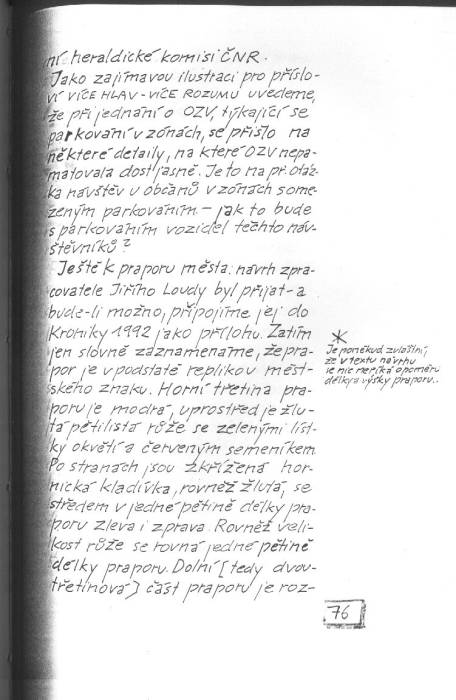 ní heraldické komisi ČNR.
Jako zajímavou ilustraci pro příslo-
ví VÍCE HLAV - VÍCE ROZUMU uvedeme,
že při jednání o OZV, týkající se
parkování v zónách, se přišlo na
některé detaily, na které OZV nepa-
matovala dost jasně. Je to na př. otáz-
ka návštěv u občanů v zónách s ome-
zeným parkováním - jak to bude
s parkováním vozidel těchto náv-
štěvníků?
Ještě k praporu města: návrh zpra-
covatele Jiřího Loudy byl přijat - a
bude-li možno, připojíme jej do
Kroniky 1992 jako přílohu. Zatím
jen slovně zaznamenáme, že pra-
por je v podstatě replikou měst-
ského znaku. Horní třetina pra-
poru je modrá, uprostřed je žlu-
tá pětilistá růže se zelenými líst-
ky okvětí a červeným semeníkem.
Po stranách jsou zkřížená hor-
nická kladívka, rovněž žlutá, se
středem v jedné pětině délky pra-
poru zleva i zprava. Rovněž veli-
kost růže se rovná jedné pětině
délky praporu. Dolní [tedy dvou-
třetinová] část praporu je roz-
*
Je poněkud zvláštní,
že v textu návrhu
se nic neříká o poměru
délky a výšky praporu..
76